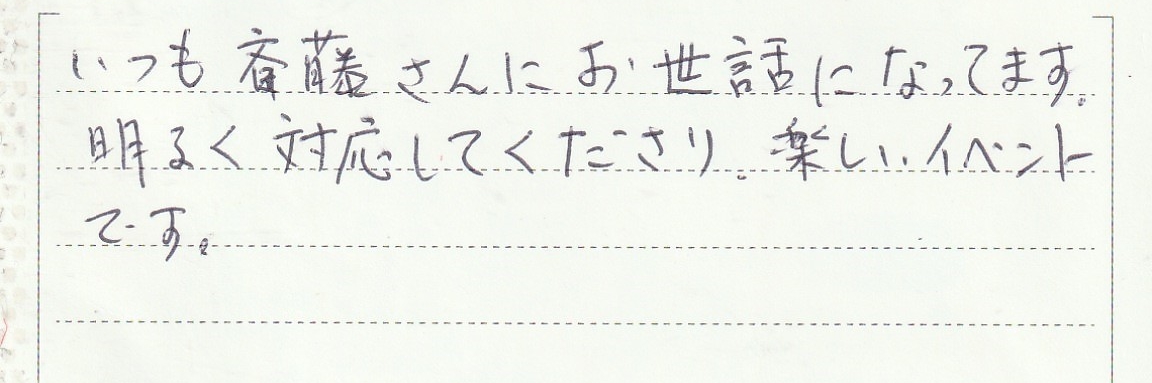 いつも斉藤さんにお世話になってます。
明るく対応してくださり、楽しいイベント
です。